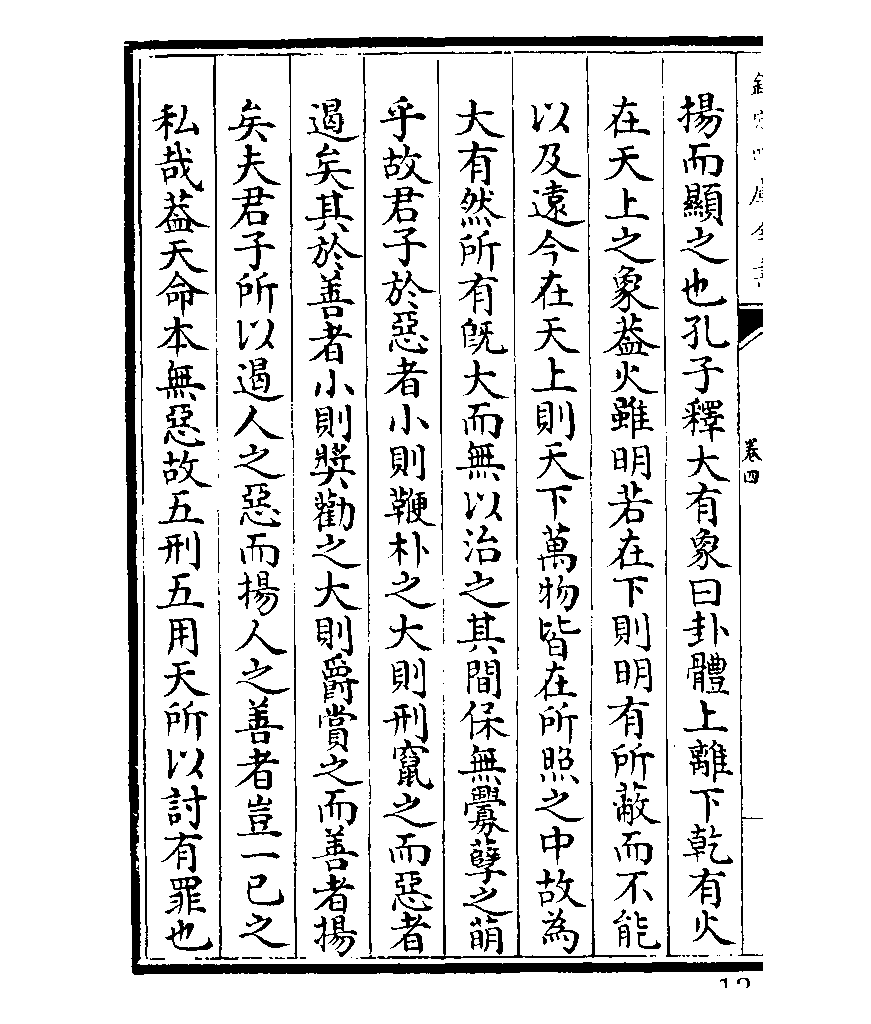 揚而顯之也孔子釋大有象曰卦體上離下乾有火
在天上之象葢火雖明若在下則明有所蔽而不能
以及遠今在天上則天下萬物皆在所照之中故為
大有然所有既大而無以治之其間保無釁孽之萌
乎故君子於惡者小則鞭朴之大則刑竄之而惡者
遏矣其於善者小則奬勸之大則爵賞之而善者揚
矣夫君子所以遏人之惡而揚人之善者豈一已之
私哉葢天命本無惡故五刑五用天所以討有罪也
卷四